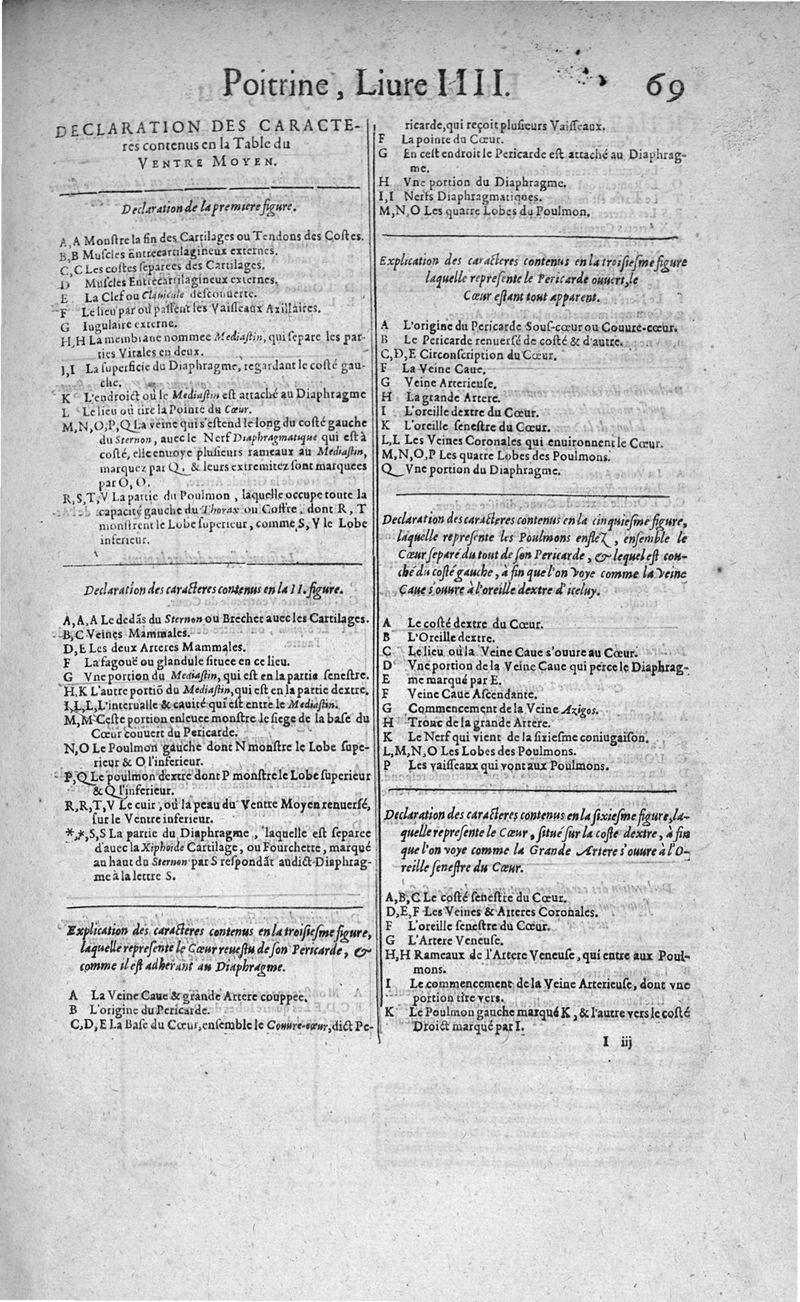 Poitrine, Liure IIII. 69
DECLARATION DES CARACTE-
res contenus en la Table du
VENTRE MOYEN.
Declaration de la premiere figure.
A, A Monſtre la fin des Cartilages ou Tendons des Coſtes.
B, B Muſcles Entrecartilagineux externes.
C, C Les coſtes ſeparees des Cartilages.
D Muſcles Entrecartilagineux externes.
E La Clef ou Clauicule deſcouuerte.
F Le lieu par où paſſent les Vaiſſeaux Axillaires.
G Iugulaire externe.
H, H La membrane nommee Mediaſtin, qui ſepare les par-
ties Vitales en deux.
I, I La ſuperficie du Diaphragme, regardant le coſté gau-
che.
K L'endroict où le Mediaſtin eſt attaché au Diaphragme
L Le lieu où tire la Pointe du Cœur.
M, N, O, P, Q La veine qui s'eſtend le long du coſté gauche
du Sternon, auec le Nerf Diaphragmatique qui eſt à
coſté, elle enuoye pluſieurs rameaux au Mediaſtin,
marquez par Q, & leurs extremitez ſont marquees
par O, O.
R, S, T, V La partie du Poulmon, laquelle occupe toute la
capacité gauche du Thorax ou Coffre, dont R, T
monſtrent le Lobe ſuperieur, comme S, V le Lobe
inferieur.
Declaration des caracteres contenus en la II. figure.
A, A, A Le dedãs du Sternon ou Brechet auec les Cartilages.
B, C Veines Mammales.
D, E Les deux Arteres Mammales.
F La fagouë ou glandule ſituee en ce lieu.
G Vne portion du Mediaſtin, qui eſt en la partie ſeneſtre.
H, K L'autre portiõ du Mediaſtin, qui eſt en la partie dextre.
I, L, L, L'interualle & cauité qui eſt entre le Mediaſtin.
M, M Ceſte portion enleuee monſtre le ſiege de la baſe du
Cœur couuert du Pericarde.
N, O Le Poulmon gauche dont N monſtre le Lobe ſupe-
rieur & O l'inferieur.
P, Q Le poulmon dextre dont P monſtre le Lobe ſuperieur
& Q l'inferieur.
R, R, T, V Le cuir, où la peau du Ventre Moyen renuerſé,
ſur le Ventre inferieur.
*, *, S, S La partie du Diaphragme, laquelle eſt ſeparee
d'auec la Xiphoide Cartilage, ou Fourchette, marqué
au haut du Sternon par S reſpondãt audict Diaphrag-
me à la lettre S.
Explication des caracteres contenus en la troiſieſme figure,
laquelle repreſente le Cœur reueſtu de ſon Pericarde, &
comme il eſt adherant au Diaphragme.
A La Veine Caue & grande Artere couppee.
B L'origine du Pericarde.
C, D, E La Baſe du Cœur, enſemble le Couure-cœur, dict Pe-
ricarde, qui reçoit pluſieurs Vaiſſeaux.
F La pointe du Cœur.
G En ceſt endroit le Pericarde eſt attaché au Diaphrag-
me.
H Vne portion du Diaphragme.
I, I Nerfs Diaphragmatiques.
M, N, O Les quatre Lobes du Poulmon.
Explication des caracteres contenus en la troiſieſme figure
laquelle repreſente le Pericarde ouuert, le
Cœur eſtant tout apparent.
A L'origine du Pericarde Souſ-cœur ou Couure-cœur.
B Le Pericarde renuerſé de coſté & d'autre.
C, D, E Circonſcription du Cœur.
F La Veine Caue.
G Veine Arterieuſe.
H La grande Artere.
I L'oreille dextre du Cœur.
K L'oreille ſeneſtre du Cœur.
L, L Les Veines Coronales qui enuironnent le Cœur.
M, N, O, P Les quatre Lobes des Poulmons.
Q Vne portion du Diaphragme.
Declaration des caracteres contenus en la cinquieſme figure,
laquelle repreſente les Poulmons enflez, enſemble le
Cœur ſeparé du tout de ſon Pericarde, & lequel eſt cou-
ché du coſté gauche, à fin que l'on voye comme la Veine
Caue s'ouure à l'oreille dextre d'iceluy.
A Le coſté dextre du Cœur.
B L'Oreille dextre.
C Le lieu où la Veine Caue s'ouure au Cœur.
D Vne portion de la Veine Caue qui perce le Diaphrag-
E me marqué par E.
F Veine Caue Aſcendante.
G Commencement de la Veine Azigos.
H Tronc de la grande Artere.
K Le Nerf qui vient de la ſixieſme coniugaiſon.
L, M, N, O Les Lobes des Poulmons.
P Les vaiſſeaux qui vont aux Poulmons.
Declaration des caracteres contenus en la ſixieſme figure, la-
quelle repreſente le Cœur, ſitué ſur la coſte dextre, à fin
que l'on voye comme la Grande Artere s'ouure à l'O-
reille ſeneſtre du Cœur.
A, B, C Le coſté ſeneſtre du Cœur.
D, E, F Les Veines & Arteres Coronales.
F L'oreille ſeneſtre du Cœur.
G L'Artere Veneuſe.
H, H Rameaux de l'Artere Veneuſe, qui entre aux Poul-
mons.
I Le commencement de la Veine Arterieuſe, dont vne
portion tire vers.
K Le Poulmon gauche marqué K, & l'autre vers le coſté
Droict marqué par I.
I iij